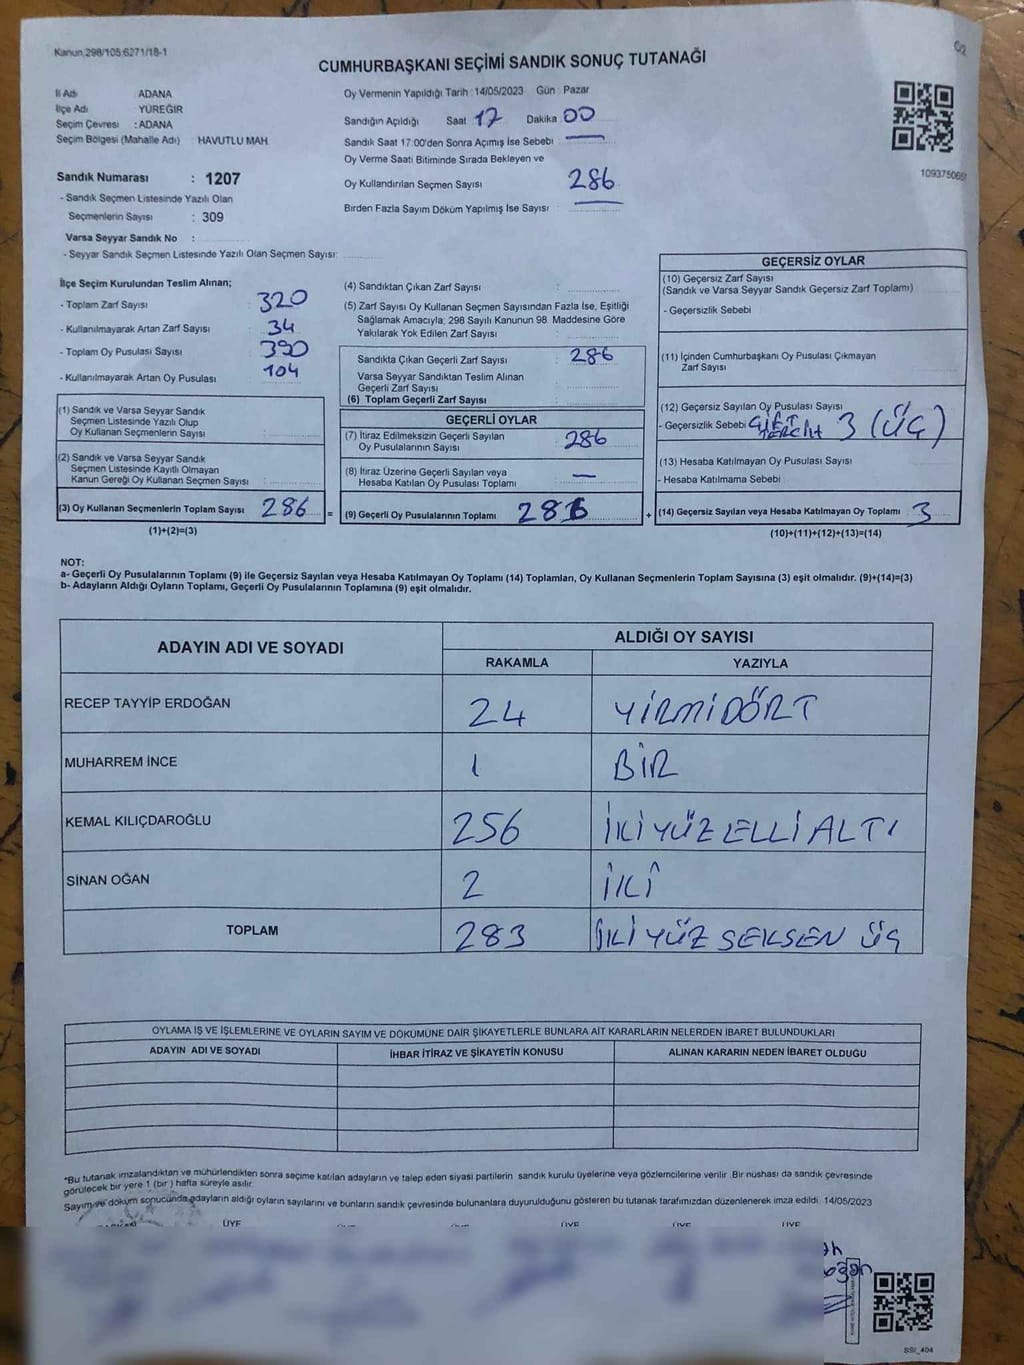 Kanun 298/105.6271/18-1
CUMHURBAŞKANI SEÇİMİ SANDIK SONUÇ TUTANAĞI
İl Adı ADANA
İlçe Adı YÜREĞİR
Seçim Çevresi : ADANA
Seçim Bölgesi (Mahalle Adı) HAVUTLU MAH
Sandık Numarası : 1207
- Sandık Seçmen Listesinde Yazılı Olan
Seçmenlerin Sayısı : 309
Varsa Seyyar Sandık No :
- Seyyar Sandık Seçmen Listesinde Yazılı Olan Seçmen Sayısı:
Oy Vermenin Yapıldığı Tarih : 14/05/2023 Gün : Pazar
Sandığın Açıldığı Saat 17 Dakika 00
Sandık Saat 17:00'den Sonra Açımış İse Sebebi : —
Oy Verme Saati Bitiminde Sırada Bekleyen ve
Oy Kullandırılan Seçmen Sayısı 286
Birden Fazla Sayım Döküm Yapılmış İse Sayısı : —
109375065
İlçe Seçim Kurulundan Teslim Alınan;
- Toplam Zarf Sayısı 320
- Kullanılmayarak Artan Zarf Sayısı 34
- Toplam Oy Pusulası Sayısı 390
- Kullanılmayarak Artan Oy Pusulası 104
(1) Sandık ve Varsa Seyyar Sandık
Seçmen Listesinde Yazılı Olup
Oy Kullanan Seçmenlerin Sayısı :
(2) Sandık ve Varsa Seyyar Sandık
Seçmen Listesinde Kayıtlı Olmayan
Kanun Gereği Oy Kullanan Seçmen Sayısı :
(3) Oy Kullanan Seçmenlerin Toplam Sayısı 286 =
(1)+(2)=(3)
(4) Sandıktan Çıkan Zarf Sayısı :
(5) Zarf Sayısı Oy Kullanan Seçmen Sayısından Fazla İse, Eşitliği
Sağlamak Amacıyla; 298 Sayılı Kanunun 98. Maddesine Göre
Yakılarak Yok Edilen Zarf Sayısı :
Sandıkta Çıkan Geçerli Zarf Sayısı : 286
Varsa Seyyar Sandıktan Teslim Alınan
Geçerli Zarf Sayısı :
(6) Toplam Geçerli Zarf Sayısı :
GEÇERLİ OYLAR
(7) İtiraz Edilmeksizin Geçerli Sayılan
Oy Pusulalarının Sayısı : 286
(8) İtiraz Üzerine Geçerli Sayılan veya
Hesaba Katılan Oy Pusulası Toplamı : —
(9) Geçerli Oy Pusulalarının Toplamı 286 +
GEÇERSİZ OYLAR
(10) Geçersiz Zarf Sayısı
(Sandık ve Varsa Seyyar Sandık Geçersiz Zarf Toplamı) :
- Geçersizlik Sebebi :
(11) İçinden Cumhurbaşkanı Oy Pusulası Çıkmayan
Zarf Sayısı :
(12) Geçersiz Sayılan Oy Pusulası Sayısı :
- Geçersizlik Sebebi ÇİFT TERCİH 3 (ÜÇ)
(13) Hesaba Katılmayan Oy Pusulası Sayısı :
- Hesaba Katılmama Sebebi :
(14) Geçersiz Sayılan veya Hesaba Katılmayan Oy Toplamı : 3
(10)+(11)+(12)+(13)=(14)
NOT:
a- Geçerli Oy Pusulalarının Toplamı (9) ile Geçersiz Sayılan veya Hesaba Katılmayan Oy Toplamı (14) Toplamları, Oy Kullanan Seçmenlerin Toplam Sayısına (3) eşit olmalıdır. (9)+(14)=(3)
b- Adayların Aldığı Oyların Toplamı, Geçerli Oy Pusulalarının Toplamına (9) eşit olmalıdır.
ADAYIN ADI VE SOYADI ALDIĞI OY SAYISI
RAKAMLA YAZIYLA
RECEP TAYYİP ERDOĞAN 24 YİRMİDÖRT
MUHARREM İNCE 1 BİR
KEMAL KILIÇDAROĞLU 256 İKİYÜZELLİALTI
SİNAN OĞAN 2 İKİ
TOPLAM 283 İKİYÜZSEKSEN ÜÇ
OYLAMA İŞ VE İŞLEMLERİNE VE OYLARIN SAYIM VE DÖKÜMÜNE DAİR ŞİKAYETLERLE BUNLARA AİT KARARLARIN NELERDEN İBARET BULUNDUKLARI
ADAYIN ADI VE SOYADI İHBAR İTİRAZ VE ŞİKAYETİN KONUSU ALINAN KARARIN NEDEN İBARET OLDUĞU
*Bu tutanak imzalandıktan ve mühürlendikten sonra seçime katılan adayların ve talep eden siyasi partilerin sandık kurulu üyelerine veya gözlemcilerine verilir. Bir nüshası da sandık çevresinde
görülecek bir yere 1 (bir) hafta süreyle asılır.
Sayım ve döküm sonucunda adayların aldığı oyların sayılarını ve bunların sandık çevresinde bulunanlara duyurulduğunu gösteren bu tutanak tarafımızdan düzenlenerek imza edildi. 14/05/2023
ÜYE ÜYE ÜYE ÜYE ÜYE
SSI_404